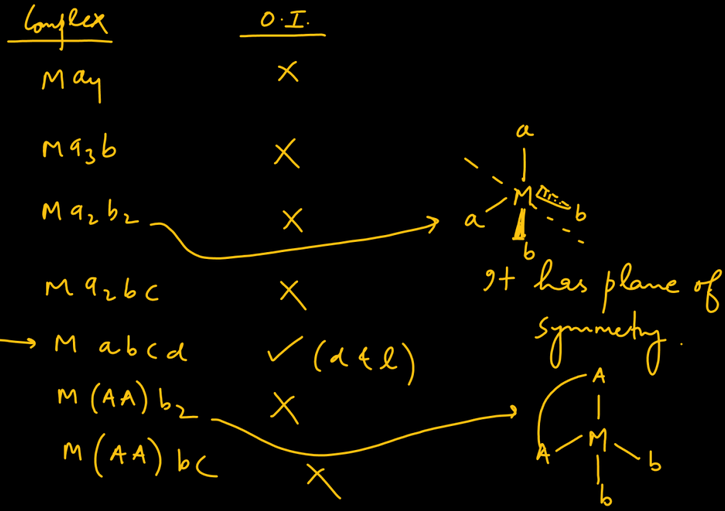 Complex O.I.
Ma4 X
Ma3b X
Ma2b2 X
Ma2bc X
→ Mabcd ✓ (d & l)
M(AA)b2 X
M(AA)bc X
a
M
a b
b
It has plane of
symmetry.
A
A M b
b